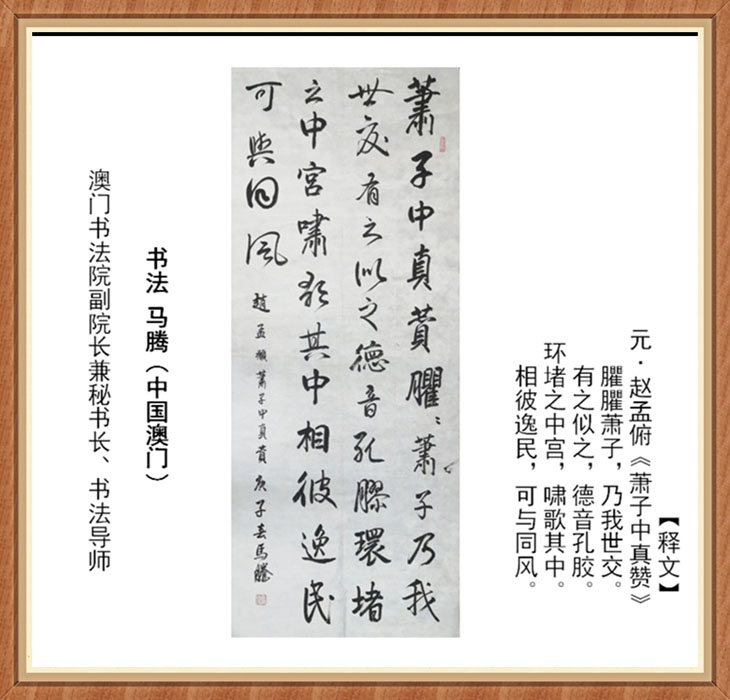 【释文】
元·赵孟俯《萧子中真赞》
臞臞萧子，乃我世交。
有之似之，德音孔胶。
环堵之中宫，啸歌其中。
相彼逸民，可与同风。
蕭子中真贊臞〻蕭子乃我
世交有之似之德音孔膠環堵
之中宮嘯歌其中相彼逸民
可與同風
趙孟頫蕭子中真贊 庚子春馬騰
书法 马腾（中国澳门）
澳门书法院副院长兼秘书长、书法导师